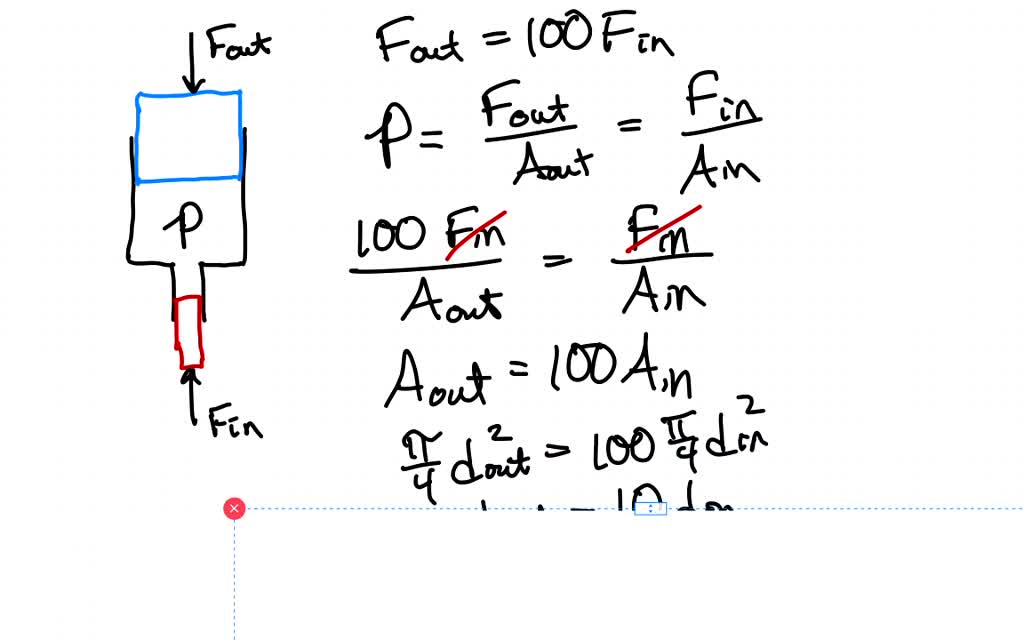 Fout
Fout = 100 Fin
P = Fout/Aout = Fin/Ain
P
100 Fin/Aout = Fin/Ain
Aout = 100 Ain
Fin
π/4 dout² = 100 π/4 din²
= 10